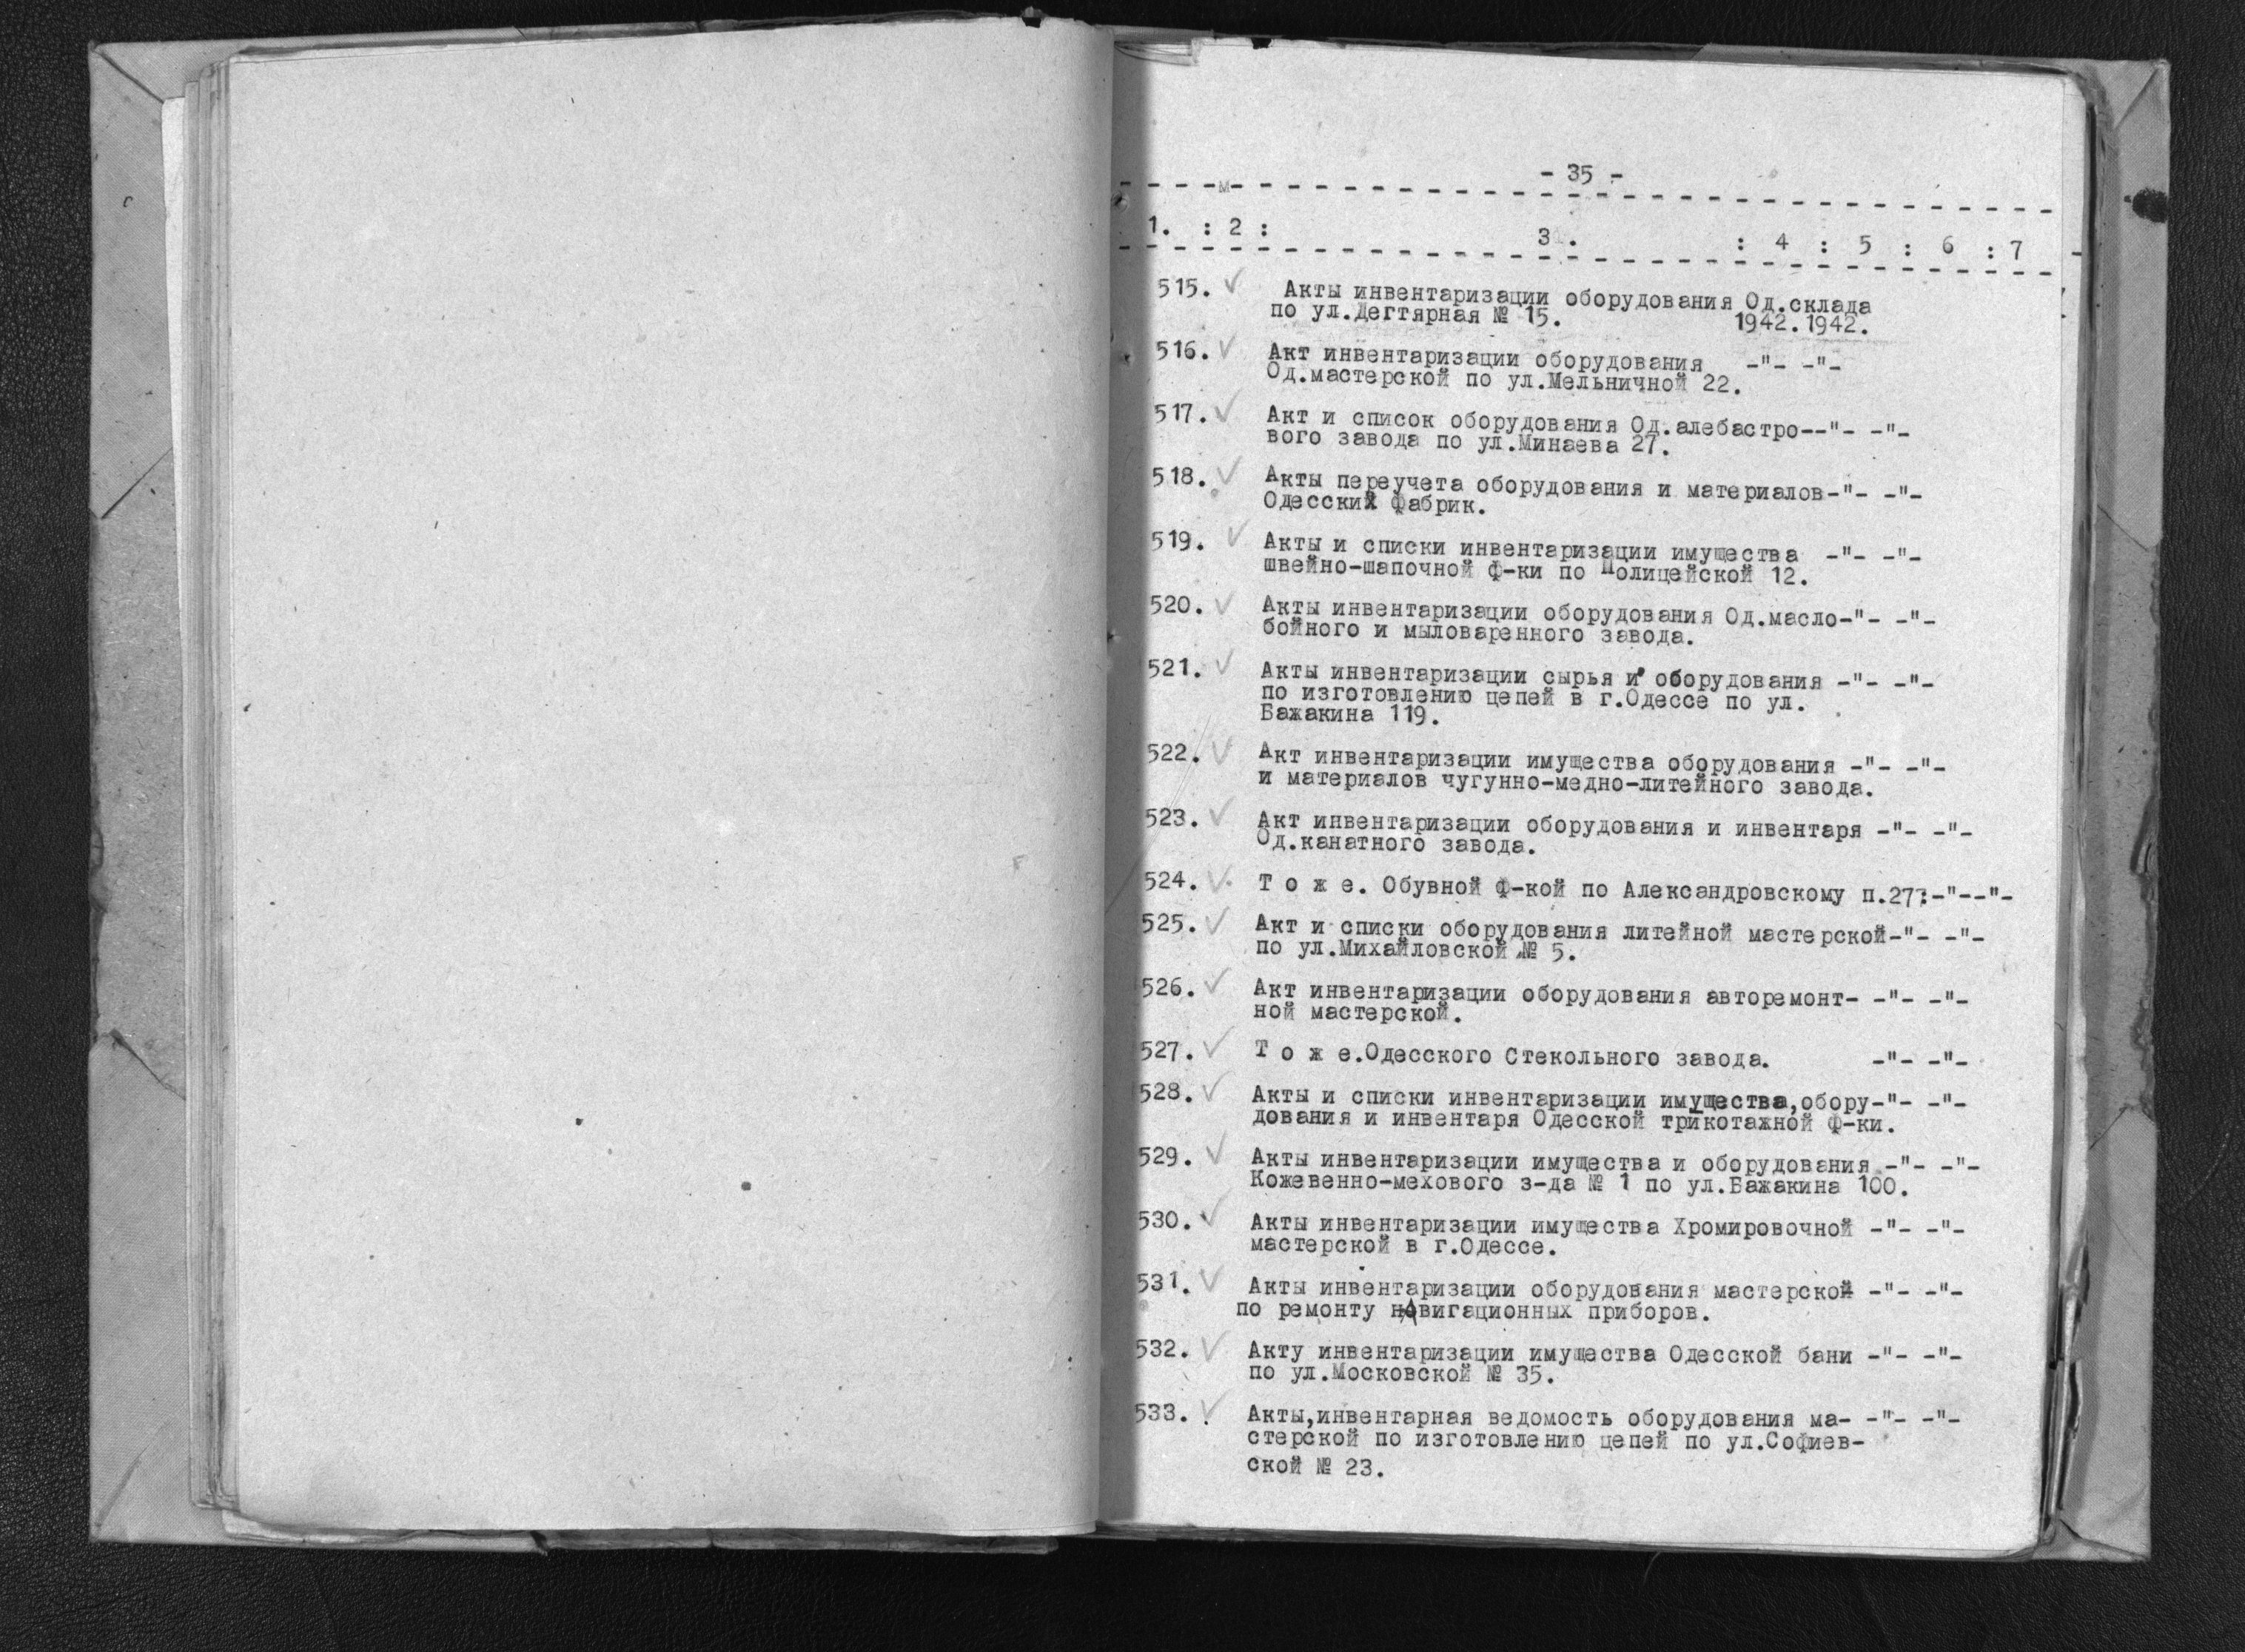 - 35 -
1. : 2 : 3. : 4 : 5 : 6 : 7
515. Акты инвентаризации оборудования Од.склада
по ул.Дегтярная № 15. 1942.1942.
516. Акт инвентаризации оборудования -"- -"-
Од.мастерской по ул.Мельничной 22.
517. Акт и список оборудования Од.алебастро--"- -"-
вого завода по ул.Минаева 27.
518. Акты переучета оборудования и материалов-"- -"-
Одесских фабрик.
519. Акты и списки инвентаризации имущества -"- -"-
швейно-шапочной ф-ки по Полицейской 12.
520. Акты инвентаризации оборудования Од.масло-"- -"-
бойного и мыловаренного завода.
521. Акты инвентаризации сырья и оборудования -"- -"-
по изготовлению цепей в г.Одессе по ул.
Бажакина 119.
522. Акт инвентаризации имущества оборудования -"- -"-
и материалов чугунно-медно-литейного завода.
523. Акт инвентаризации оборудования и инвентаря -"- -"-
Од.канатного завода.
524. Т о ж е. Обувной ф-кой по Александровскому п.27:-"--"-
525. Акт и списки оборудования литейной мастерской-"- -"-
по ул.Михайловской № 5.
526. Акт инвентаризации оборудования авторемонт- -"- -"-
ной мастерской.
527. Т о ж е.Одесского Стекольного завода. -"- -"-
528. Акты и списки инвентаризации имущества,обору-"- -"-
дования и инвентаря Одесской трикотажной ф-ки.
529. Акты инвентаризации имущества и оборудования -"- -"-
Кожевенно-мехового з-да № 1 по ул.Бажакина 100.
530. Акты инвентаризации имущества Хромировочной -"- -"-
мастерской в г.Одессе.
531. Акты инвентаризации оборудования мастерской -"- -"-
по ремонту навигационных приборов.
532. Акту инвентаризации имущества Одесской бани -"- -"-
по ул.Московской № 35.
533. Акты,инвентарная ведомость оборудования ма- -"- -"-
стерской по изготовлению цепей по ул.Софиев-
ской № 23.